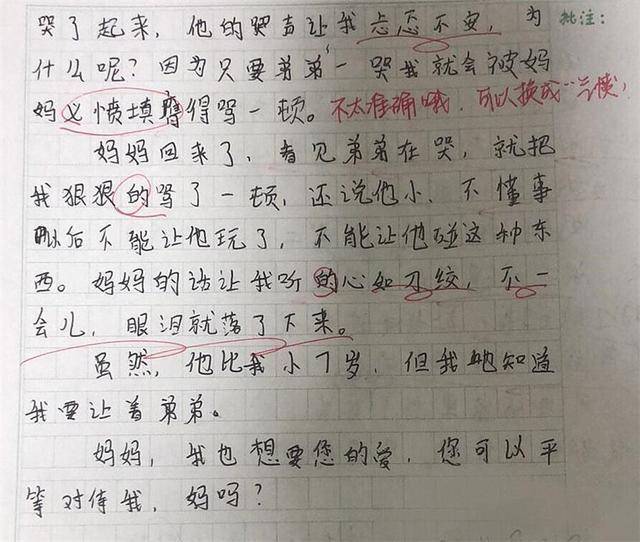 哭了起来，他的哭声让我忐忑不安，为 批注：
什么呢？因为只要弟弟一哭我就会被妈
妈义愤填膺得骂一顿。不太准确哦，可以换成“
妈妈回来了，看见弟弟在哭，就把
我狠狠的骂了一顿，还说他小，不懂事
以后不能让他玩了，不能让他碰这种东
西。妈妈的话让我听的心如刀绞，不一
会儿，眼泪就落了下来。
虽然，他比我小7岁，但我也知道
我要让着弟弟。
妈妈，我也想要您的爱，您可以平
等对待我，妈吗？